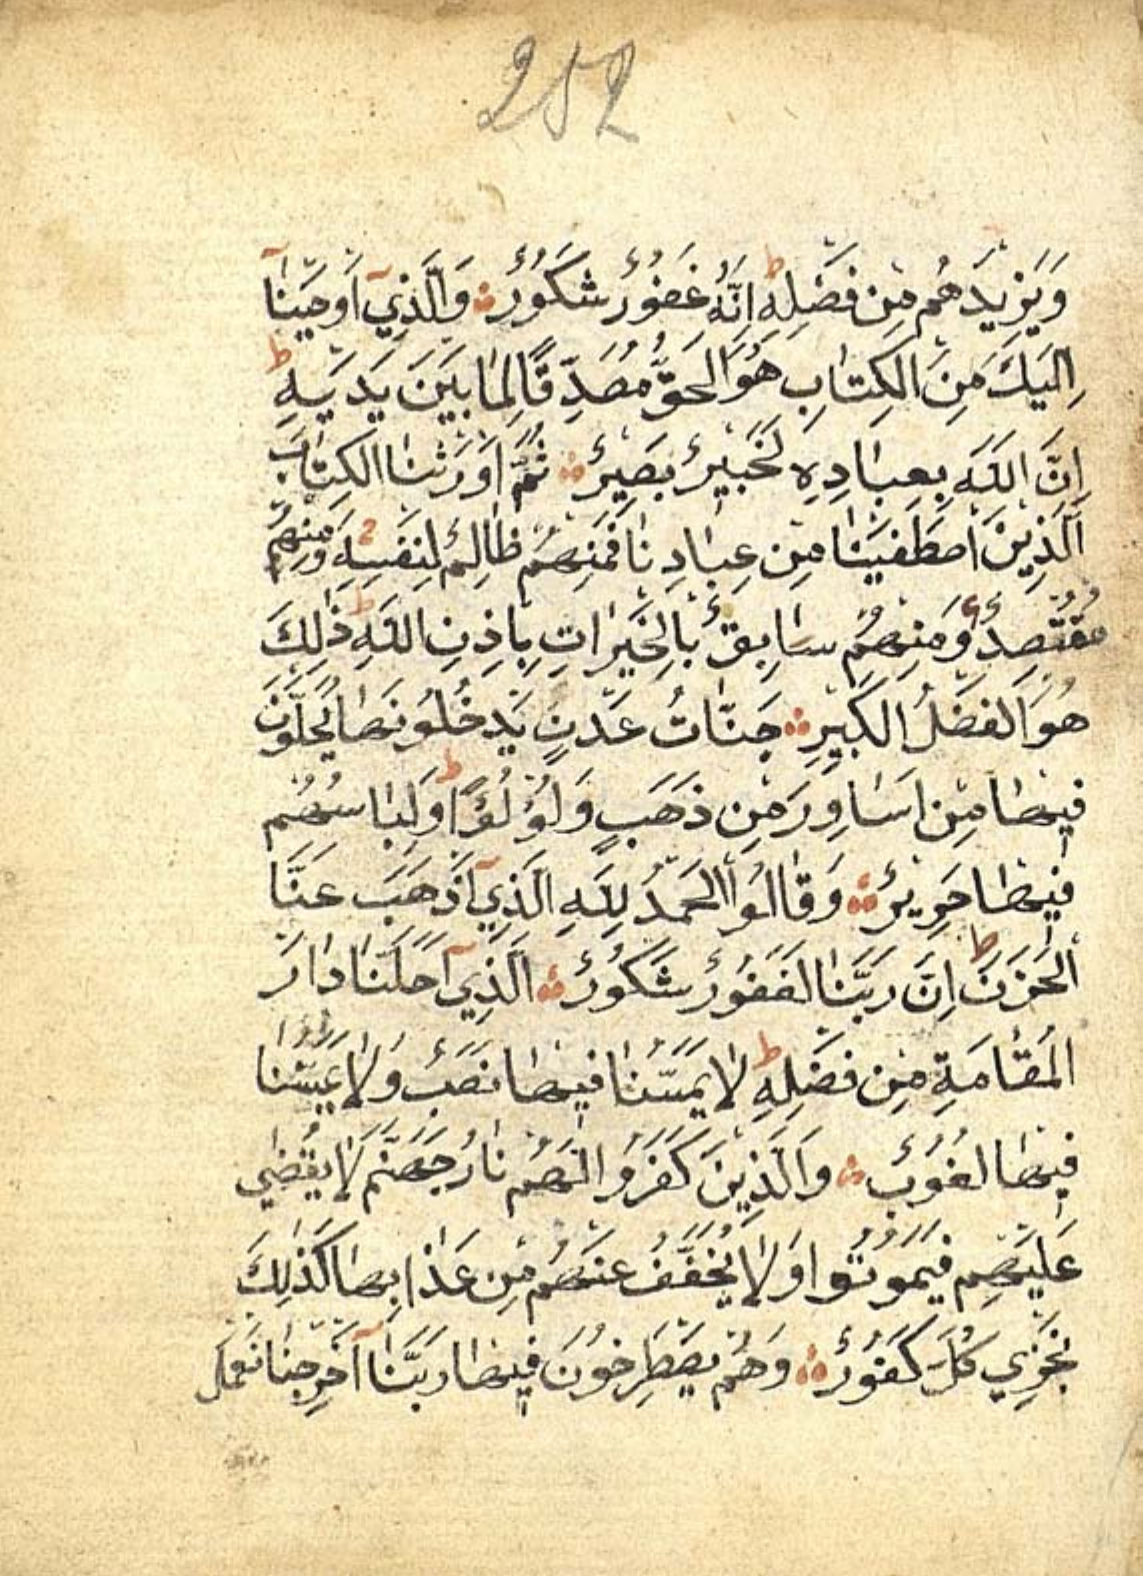 252
وَيَزِيدَهُم مِن فَضْلِهِ ط اِنَّهُ غَفُورٌ شَكُورٌ وَالَّذِيٓ اَوحَينَآ
اِلَيكَ مِنَ الكِتَابِ هُوَ الحَقُّ مُصَدِّقًا لِمَا بَينَ يَدَيهِ ط
اِنَّ اللهَ بِعِبَادِهِ لَخَبِيرٌ بَصِيرٌ ثُمَّ اَورَثنَا الكِتَابَ
الَّذِينَ اصطَفَينَا مِن عِبَادِنَا فَمِنهُم ظَالِمٌ لِنَفسِهِ وَمِنهُم
مُقتَصِدٌ وَمِنهُم سَابِقٌ بِالخَيرَاتِ بِاِذنِ اللهِ ط ذٰلِكَ
هُوَ الفَضلُ الكَبِيرِ جَنَّاتُ عَدنٍ يَدخُلُونَهَا يُحَلَّونَ
فِيهَا مِن اَسَاوِرَ مِن ذَهَبٍ وَلُؤلُؤًا ط وَلِبَاسُهُم
فِيهَا حَرِيرٌ وَقَالُوا الحَمدُ لِلهِ الَّذِيٓ اَذهَبَ عَنَّا
الحَزَنَ ط اِنَّ رَبَّنَا لَغَفُورٌ شَكُورٌ الَّذِيٓ اَحَلَّنَا دَارَ
المُقَامَةِ مِن فَضلِهِ ط لَا يَمَسُّنَا فِيهَا نَصَبٌ وَلَا يَمَسُّنَا
فِيهَا لُغُوبٌ وَالَّذِينَ كَفَرُوا لَهُم نَارُ جَهَنَّمَ لَا يُقضٰي
عَلَيهِم فَيَمُوتُوا وَلَا يُخَفَّفُ عَنهُم مِن عَذَابِهَا كَذٰلِكَ
نَجزِي كُلَّ كَفُورٌ وَهُم يَصطَرِخُونَ فِيهَا رَبَّنَآ اَخرِجنَا نَعمَل